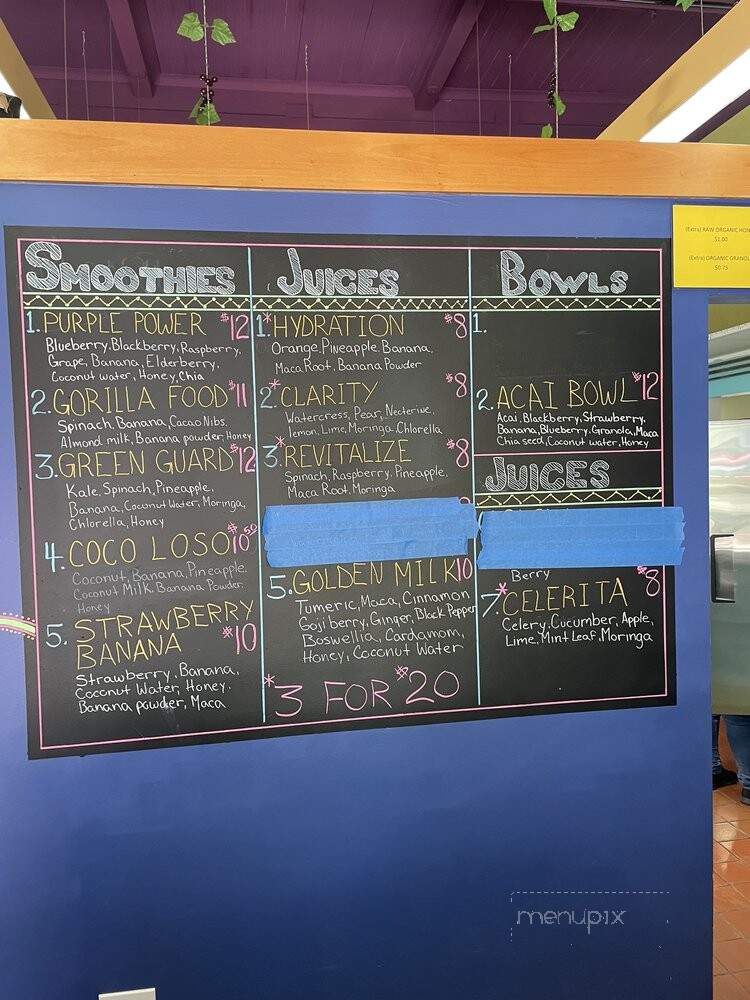 SMOOTHIES
1. PURPLE POWER $12
Blueberry, Blackberry, Raspberry,
Grape, Banana, Elderberry,
Coconut water, Honey, Chia
2. GORILLA FOOD $11
Spinach, Banana, Cacao Nibs,
Almond milk, Banana powder, Honey
3. GREEN GUARD $12
Kale, Spinach, Pineapple,
Banana, Coconut Water, Moringa,
Chlorella, Honey
4. COCO LOSO $10.50
Coconut, Banana, Pineapple
Coconut Milk, Banana Powder
Honey
5. STRAWBERRY
BANANA $10
Strawberry, Banana,
Coconut Water, Honey,
Banana powder, Maca
JUICES
1.* HYDRATION $8
Orange, Pineapple, Banana,
Maca Root, Banana Powder
2.* CLARITY $8
Watercress, Pear, Necterine,
lemon, Lime, Moringa, Chlorella
3.* REVITALIZE $8
Spinach, Raspberry, Pineapple,
Maca Root, Moringa
5. GOLDEN MILK 10
Tumeric, Maca, Cinnamon
Goji berry, Ginger, Black Pepper
Boswellia, Cardamom,
Honey, Coconut Water
* 3 FOR $20
BOWLS
1.
2. ACAI BOWL $12
Acai, Blackberry, Strawberry,
Banana, Blueberry, Granola, Maca
Chia seed, Coconut water, Honey
JUICES
Berry
7.* CELERITA $8
Celery, Cucumber, Apple,
Lime, Mint Leaf, Moringa
(Extra) RAW ORGANIC
$1.00
(Extra) ORGANIC
$0.75
menupix